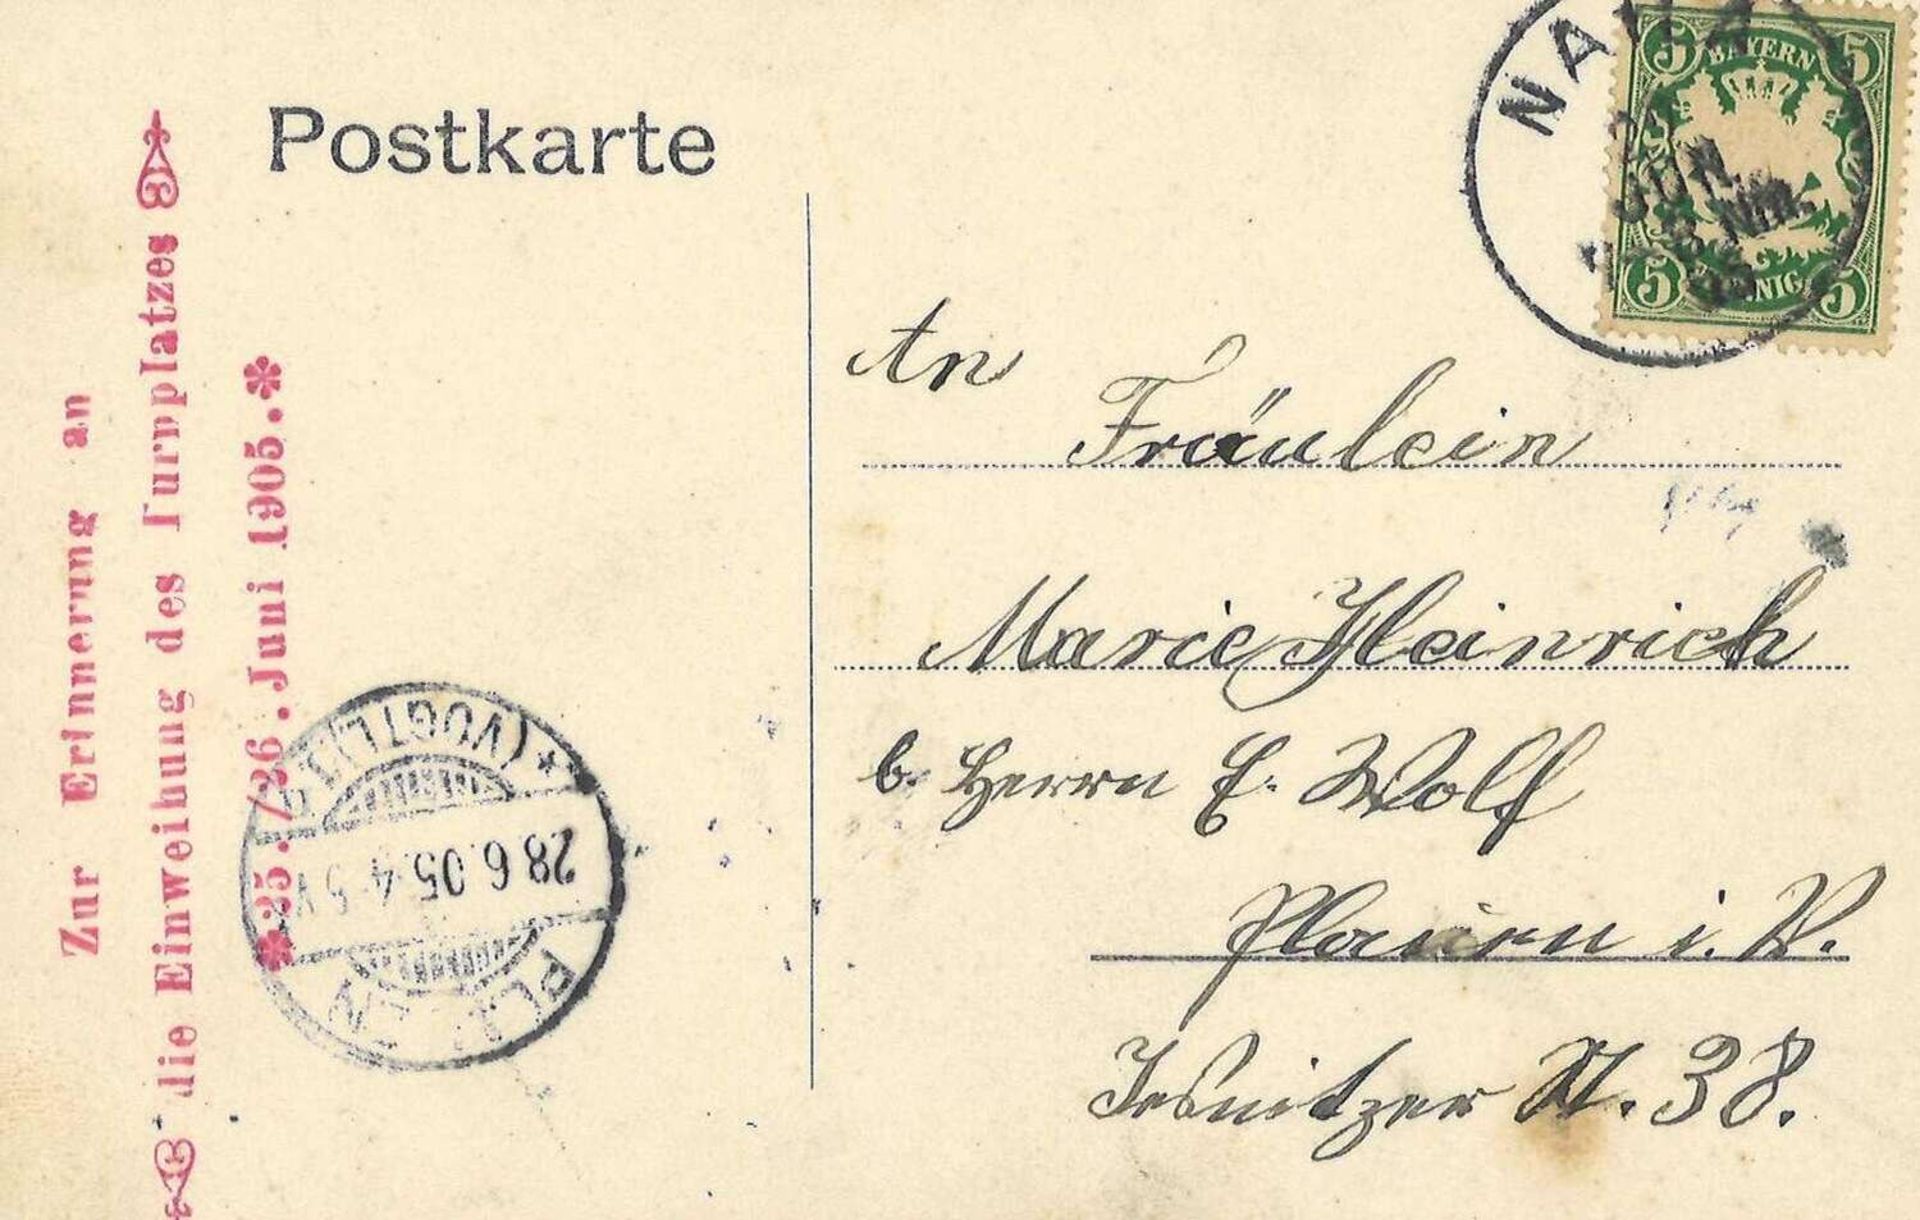 Postkarte
Zur Erinnerung an
die Einweihung des Turnplatzes
25./26. Juni 1905.
NAILA
JUN.
BAYERN
5 5
5 5
An
Fräulein
Marie Heinrich
b. Herrn E. Wolf
Plauen i. V.
N. 38.
PLAUEN
28.6.05. 4-5 V
* (VOGTL.)